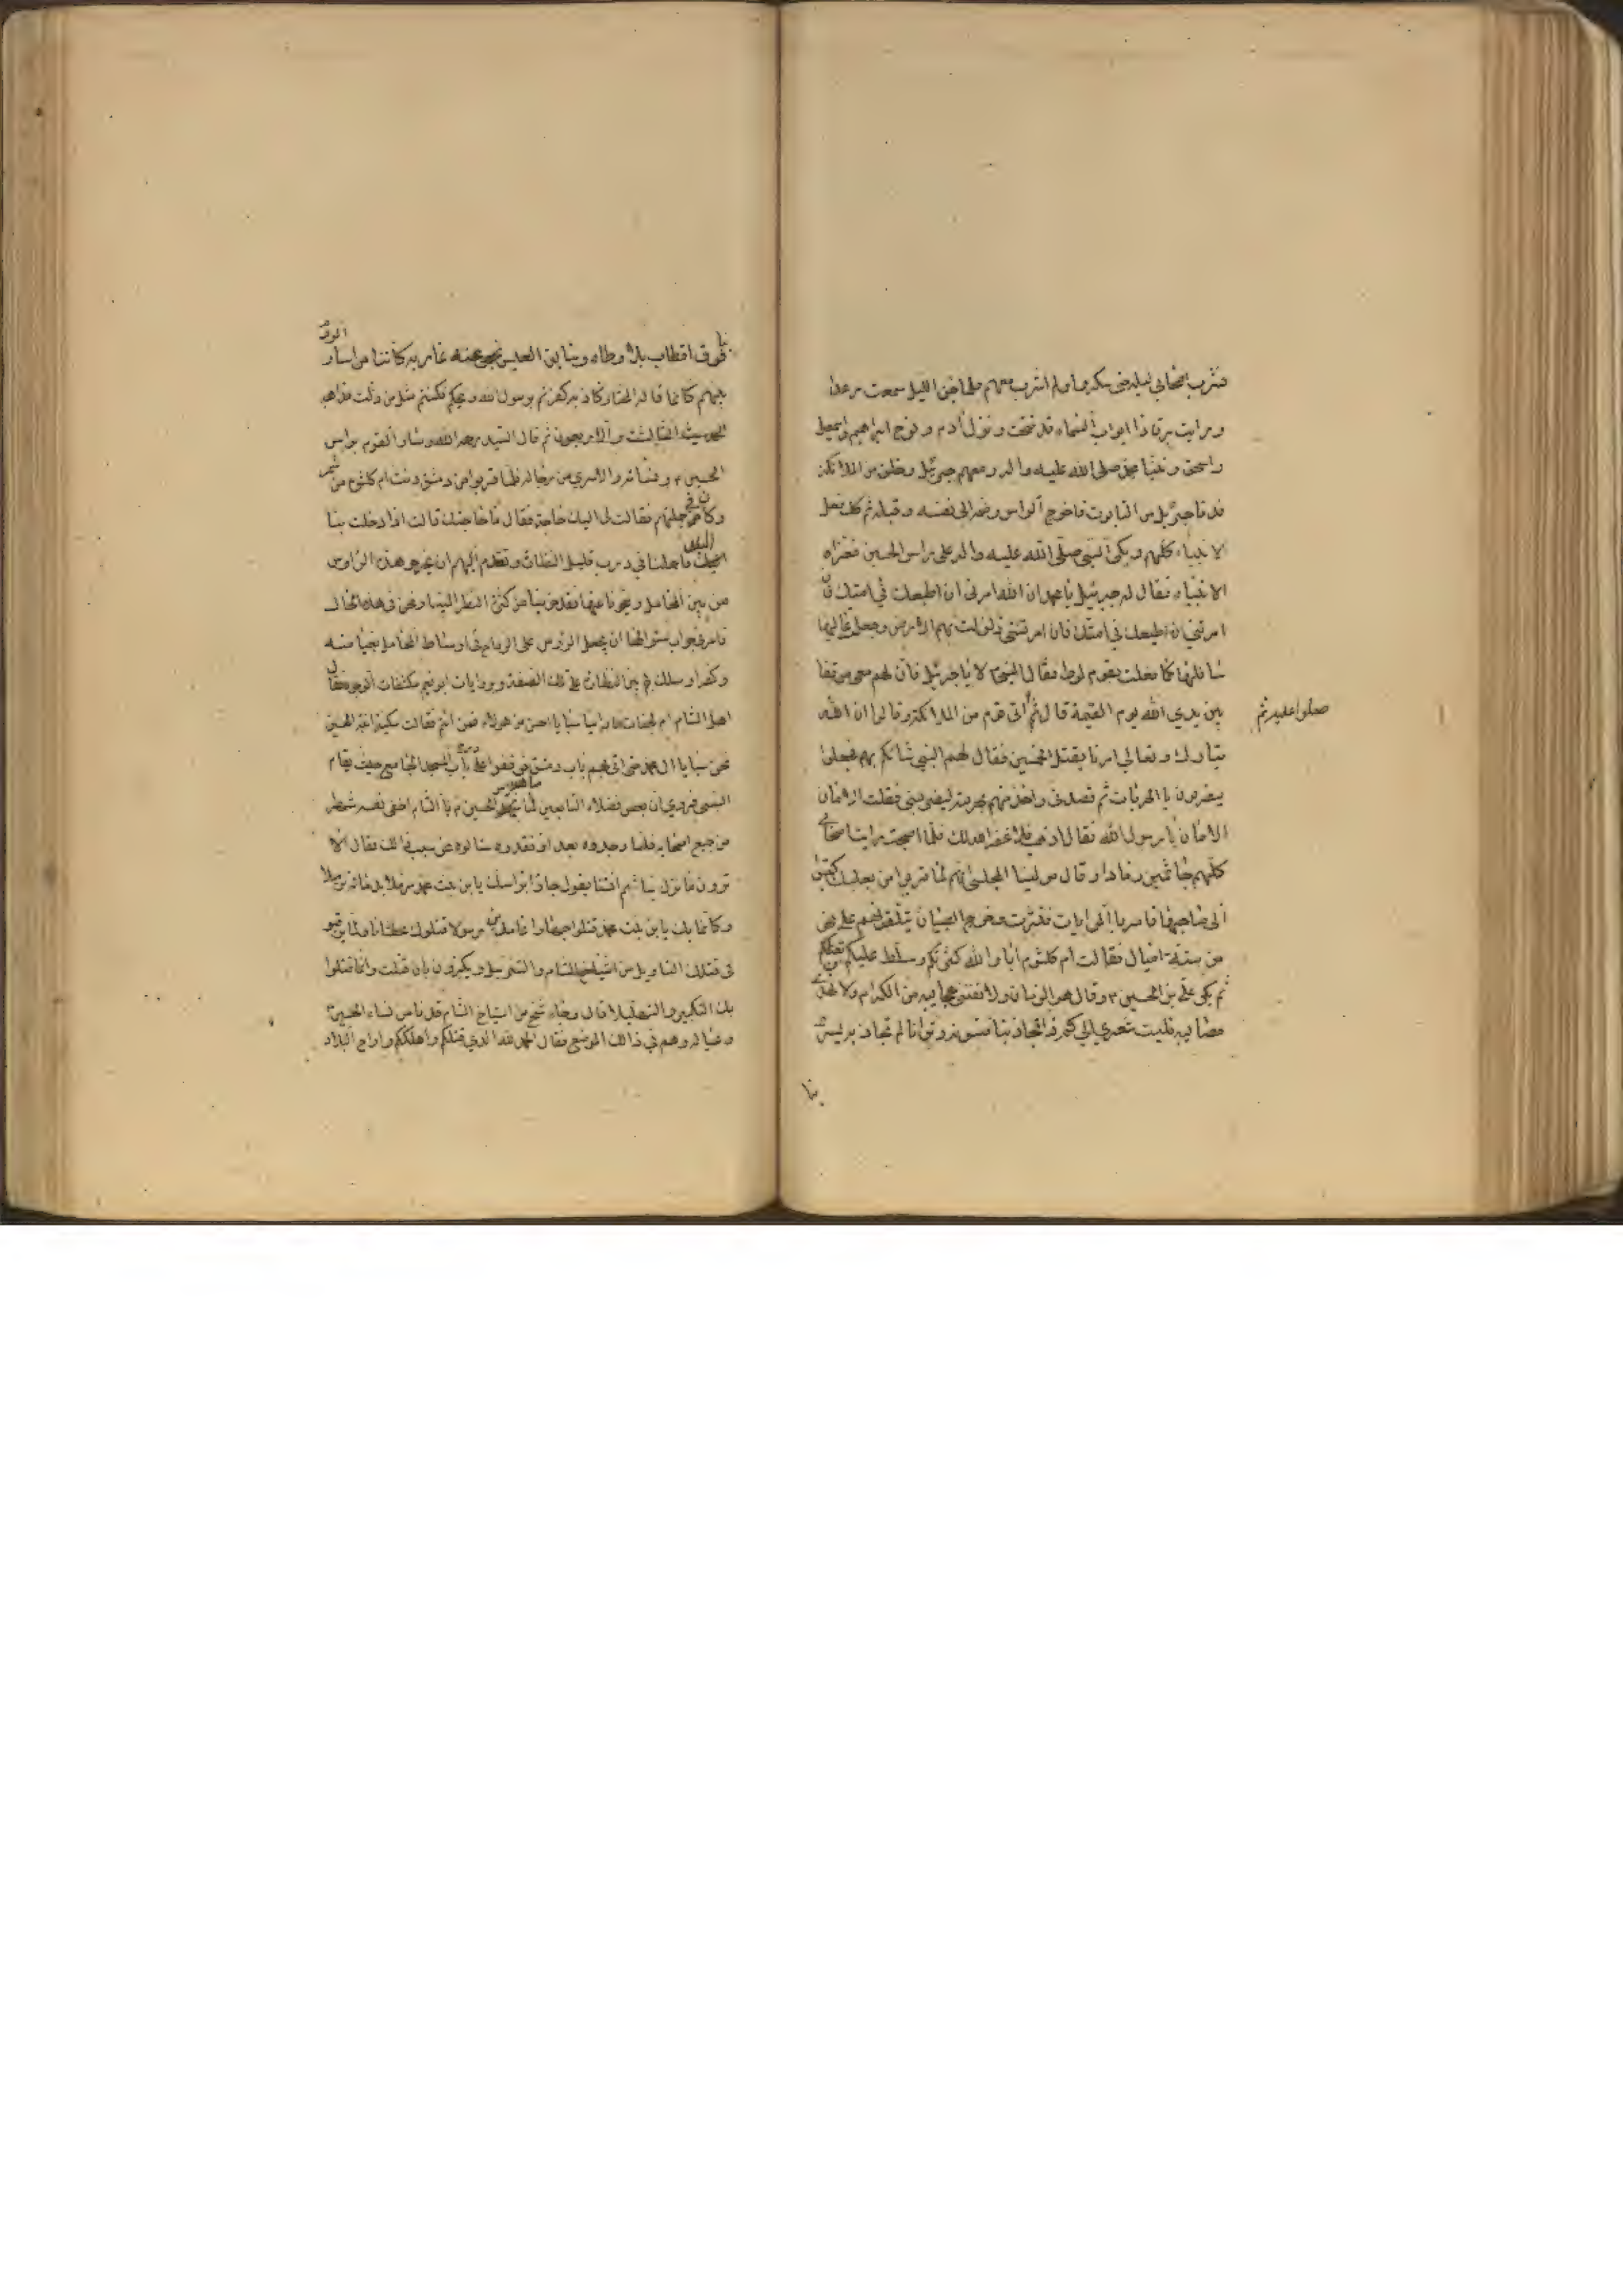 فشرب اصحابي ليلة حتى سكروا ولم اشرب معهم فلما جن الليل سمعت رعدا
ورايت برقا فاذا ابواب السماء قد فتحت ونزل آدم ونوح ابراهيم واسمعيل
واسحق ونبينا محمد صلى الله عليه واله ومعهم جبرئيل وخلق من الملائكة
فدنا جبرئيل من التابوت فاخرج الراس وضمه الى نفسه وقبله ثم كذلك فعل
الانبياء كلهم وبكى النبي صلى الله عليه واله على راس الحسين فعزاه
الانبياء فقال له جبرئيل يا محمد ان الله امرني ان اطيعك في امتك فان
امرتني ان اطيعك في امتك فان امرتني زلزلت بهم الارض وجعلت عاليها
سافلها كما فعلت بقوم لوط فقال النبي لا يا جبرئيل فان لهم معي موقفا
بين يدي الله يوم القيمة قال ثم اتى قوم من الملائكة وقالوا ان الله
صلوا عليه ثم
تبارك وتعالى امرنا بقتل الخمسين فقال لهم النبي شانكم بهم فجعلوا
يضربون بالحربات ثم قصدني واحد منهم بحربته ليضربني فقلت الامان
الامان يا رسول الله فقال اذهب فلا غفر الله لك فلما اصبحت رايت اصحابي
كلهم جاثمين رمادا وقال مولينا المجلسي انهم لما قربوا من بعلبك كتبوا
الى صاحبها فامر بالرايات فنشرت وخرج الصبيان يتلقونهم على نحو
من ستة اميال فقالت ام كلثوم اباد الله كثرتكم وسلط عليكم من يقتلكم
ثم بكى علي بن الحسين وقال هو الزمان ولا تفنى عجايبه من الكرام ولا تهدى
مصايبه فليت شعري الى كم ذا تجاذبنا فنونه وترانا لم نجاذبه يسرى
بنا
بنا فوق اقطاب بلا وطاء وسايق العيس يحمى عنه غاربه كاننا من اسارى الروم
بينهم كانما قاله المختار كاذبه كفرتم برسول الله ويحكم فكنتم مثل من ضلت مذاهبه
الحديث الثالث والاربعون ثم قال السيد رحمه الله وسار القوم براس
الحسين ونسائه والاسرى من رجاله فلما قربوا من دمشق دنت ام كلثوم من شمر
وكان في جملتهم فقالت لي اليك حاجة فقال ما حاجتك قالت اذا دخلت بنا
البلد فاحملنا في درب قليل النظارة وتقدم اليهم ان يخرجوا هذه الرؤس
من بين المحامل وينحونا عنها فقد خزينا من كثرة النظر الينا ونحن في هذه الحال
فامر في جواب سؤالها ان يجعل الرؤس على الرماح في اوساط المحامل بغيا منه
وكفرا وسلك بهم بين النظارة على تلك الصفة وبروايات مكشفات الوجوه فقال
اهل الشام ما راينا سبايا احسن من هؤلاء فمن انتم فقالت سكينة ابنة الحسين
نحن سبايا آل محمد حتى اتى بهم باب دمشق فوقفوا على باب المسجد الجامع حيث يقام
السبي فروي ان بعض فضلاء التابعين لما شاهد راس الحسين بالشام اخفى نفسه شهرا
من جميع اصحابه فلما وجدوه بعد اذ فقدوه سالوه عن سبب ذلك فقال الا
ترون ما نزل بنا ثم انشا يقول جاؤا براسك يا بن بنت محمد مترملا بدمائه ترميلا
وكانما بك يا بن بنت محمد قتلوا جهارا عامدين رسولا قتلوك عطشانا ولما يرقبوا
في قتلك التاويل والتنزيلا ويكبرون بان قتلت وانما قتلوا
بك التكبير والتهليلا قال وجاء شيخ من اشياخ الشام فدنا من نساء الحسين
وعياله وهم في ذلك الموضع فقال الحمد لله الذي قتلكم واهلككم واراح البلاد